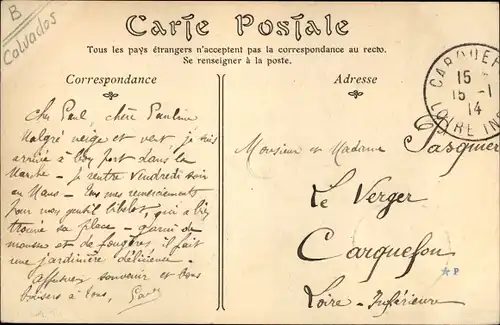 B
Calvados
Carte Postale
Tous les pays étrangers n'acceptent pas la correspondance au recto.
Se renseigner à la poste.
Correspondance
Adresse
CARQUEF
15
15 - 1
14
LOIRE INF
Cher Paul, chère Pauline
Malgré neige et vent, je suis
arrivé à bon port dans la
Manche - Je rentre Vendredi soir
au Mans - Tous mes remerciements
pour mon gentil bibelot, qui a bien
trouvé sa place - garni de
mousse et de fougères il fait
une jardinière délicieuse.
affectueux souvenir et bons
baisers à tous,
Monsieur et Madame Pasquier
Le Verger
Carquefou
Loire-Inférieure
P